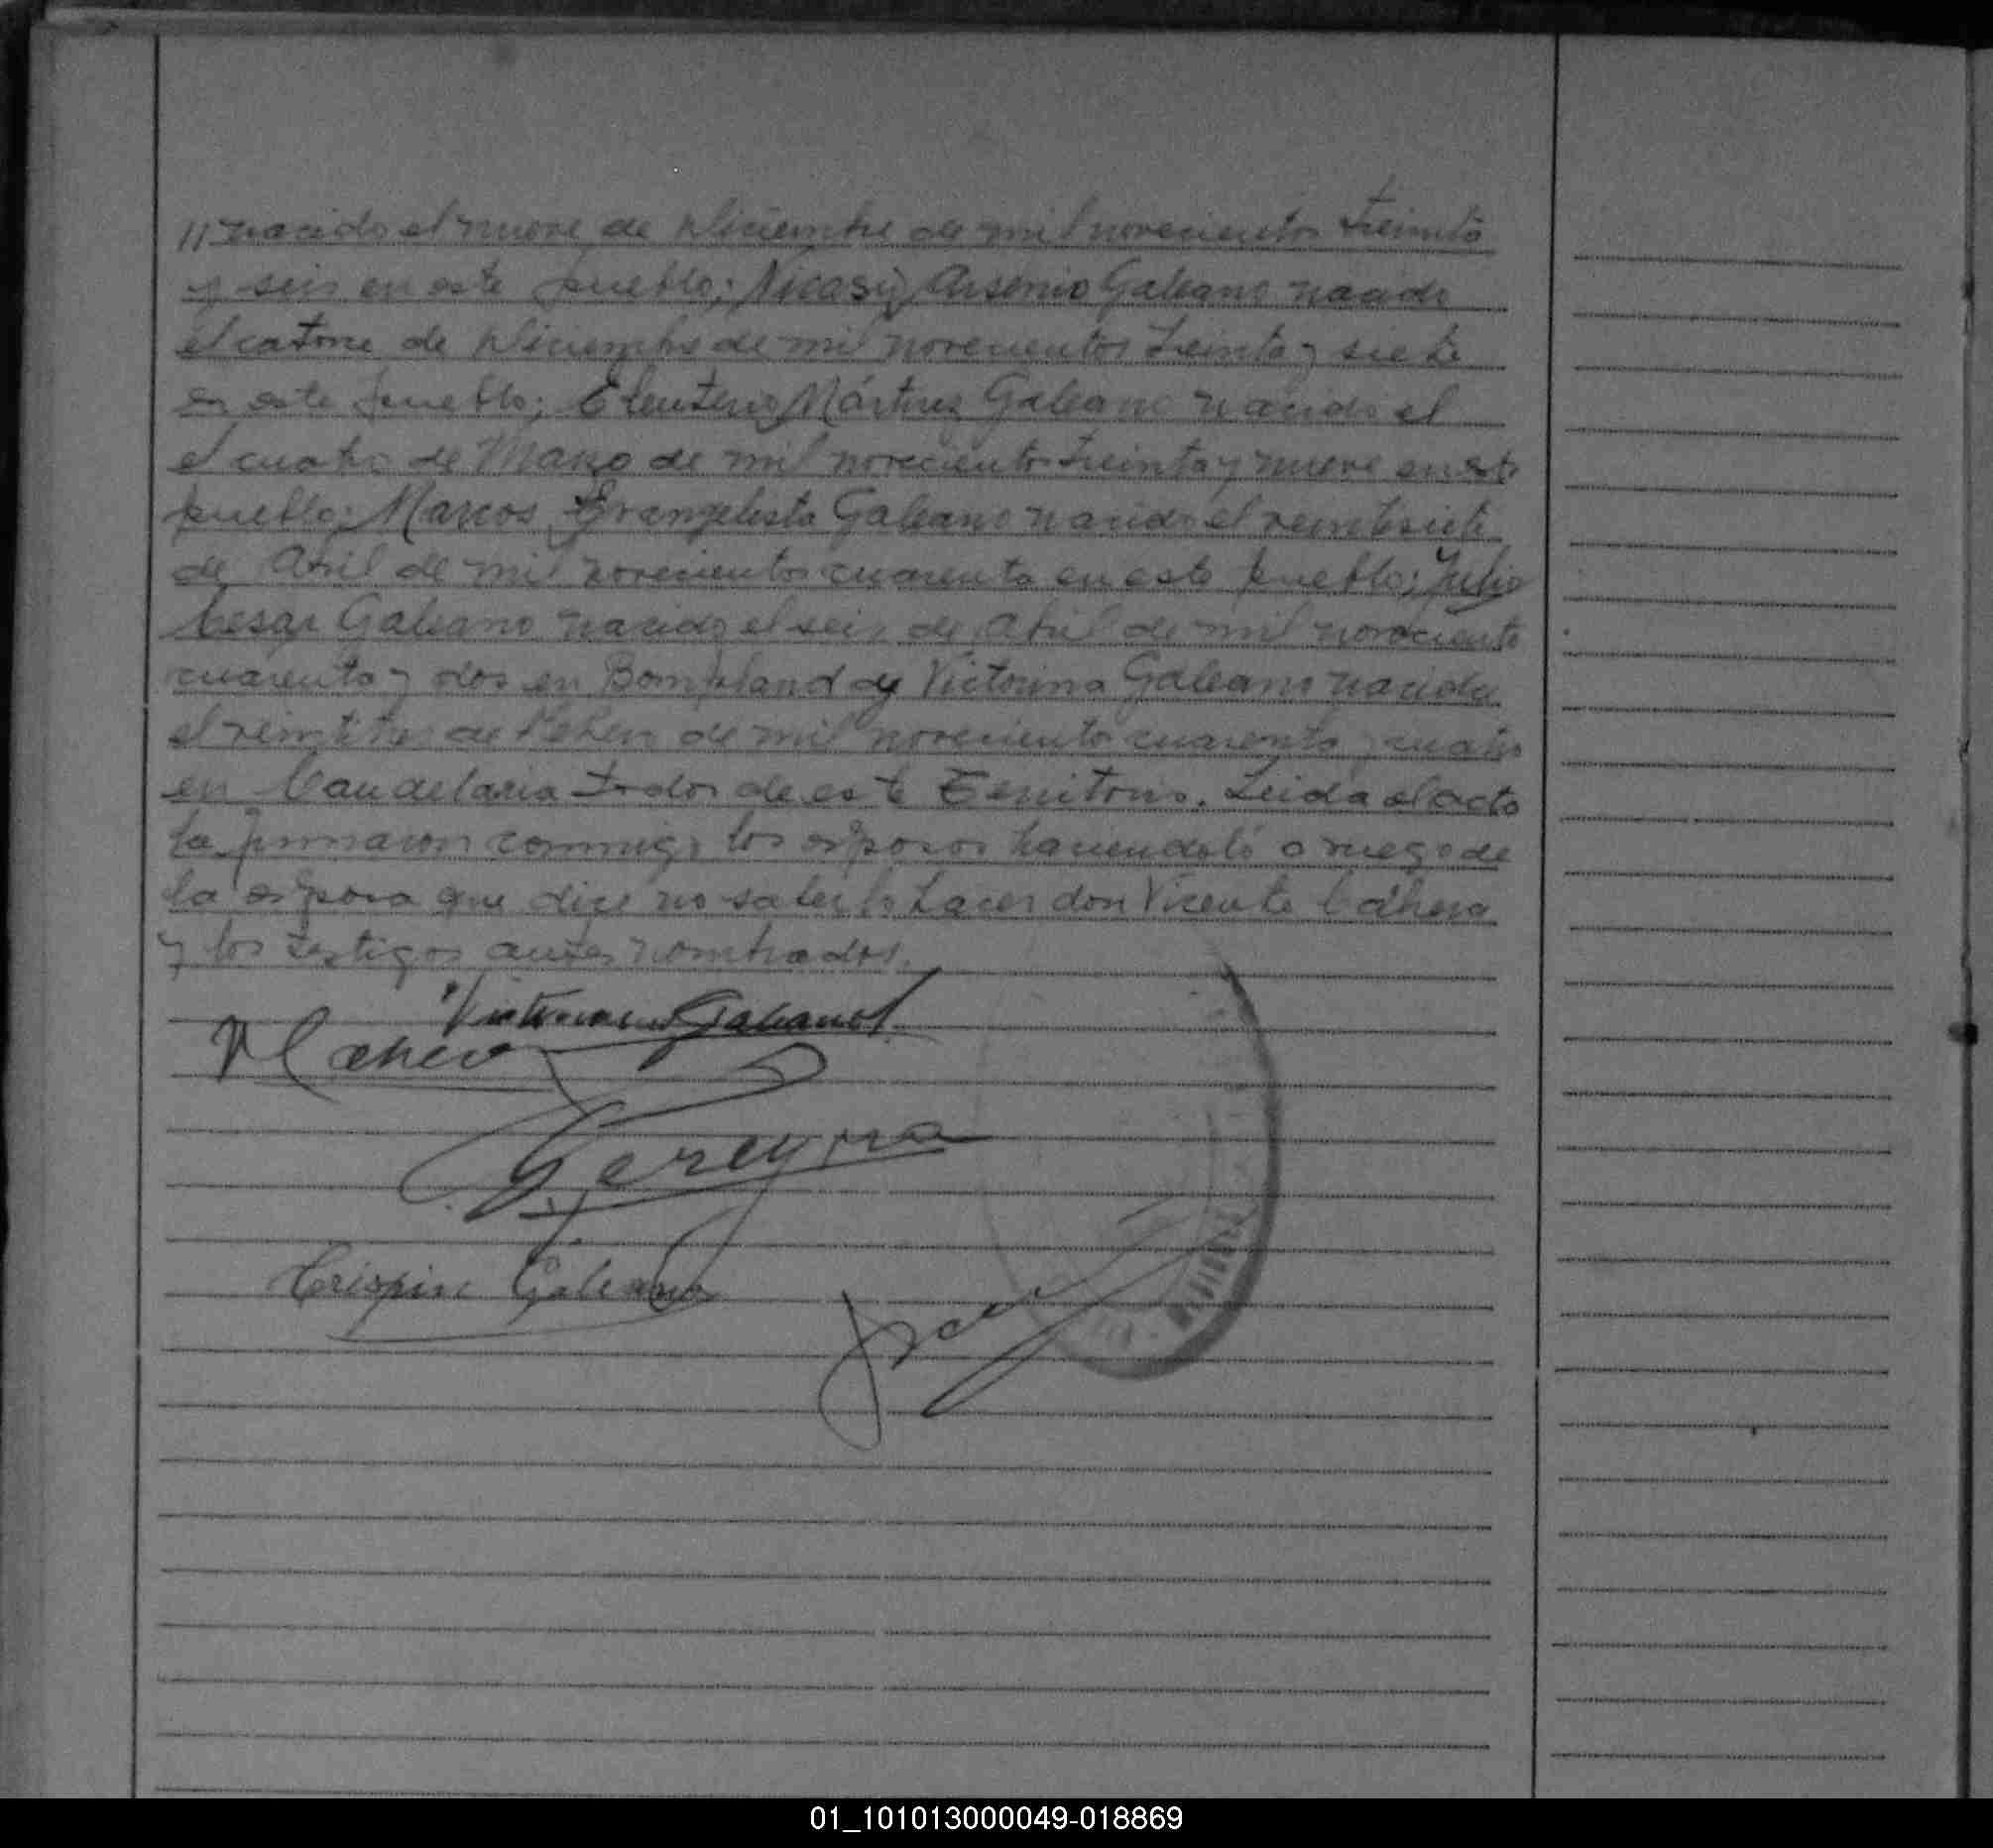 // nacido el nueve de Diciembre de mil novecientos treinta
y seis en este pueblo; Nicasio Arsenio Galeano nacido
el catorce de Diciembre de mil novecientos treinta y siete
en este pueblo; Eleuterio Mártires Galeano nacido el
el cuatro de Marzo de mil novecientos treinta y nueve en este
pueblo; Marcos Evangelista Galeano nacido el veintisiete
de Abril de mil novecientos cuarenta en este pueblo; Julio
Cesar Galeano nacido el seis de Abril de mil novecientos
cuarenta y dos en Bompland y Victorina Galeano nacida
el veintitres de de mil novecientos cuarenta y cuatro
en Candelaria todos de este Territorio. Leida el acta
la firmaron conmigo los esposos haciendoló a ruego de
la esposa que dice no saberlo hacer don Vicente Cáhera
y los testigos antes nombrados.
Victoriano Galeano
Pereyra
Crispin Galeano
01_101013000049-018869